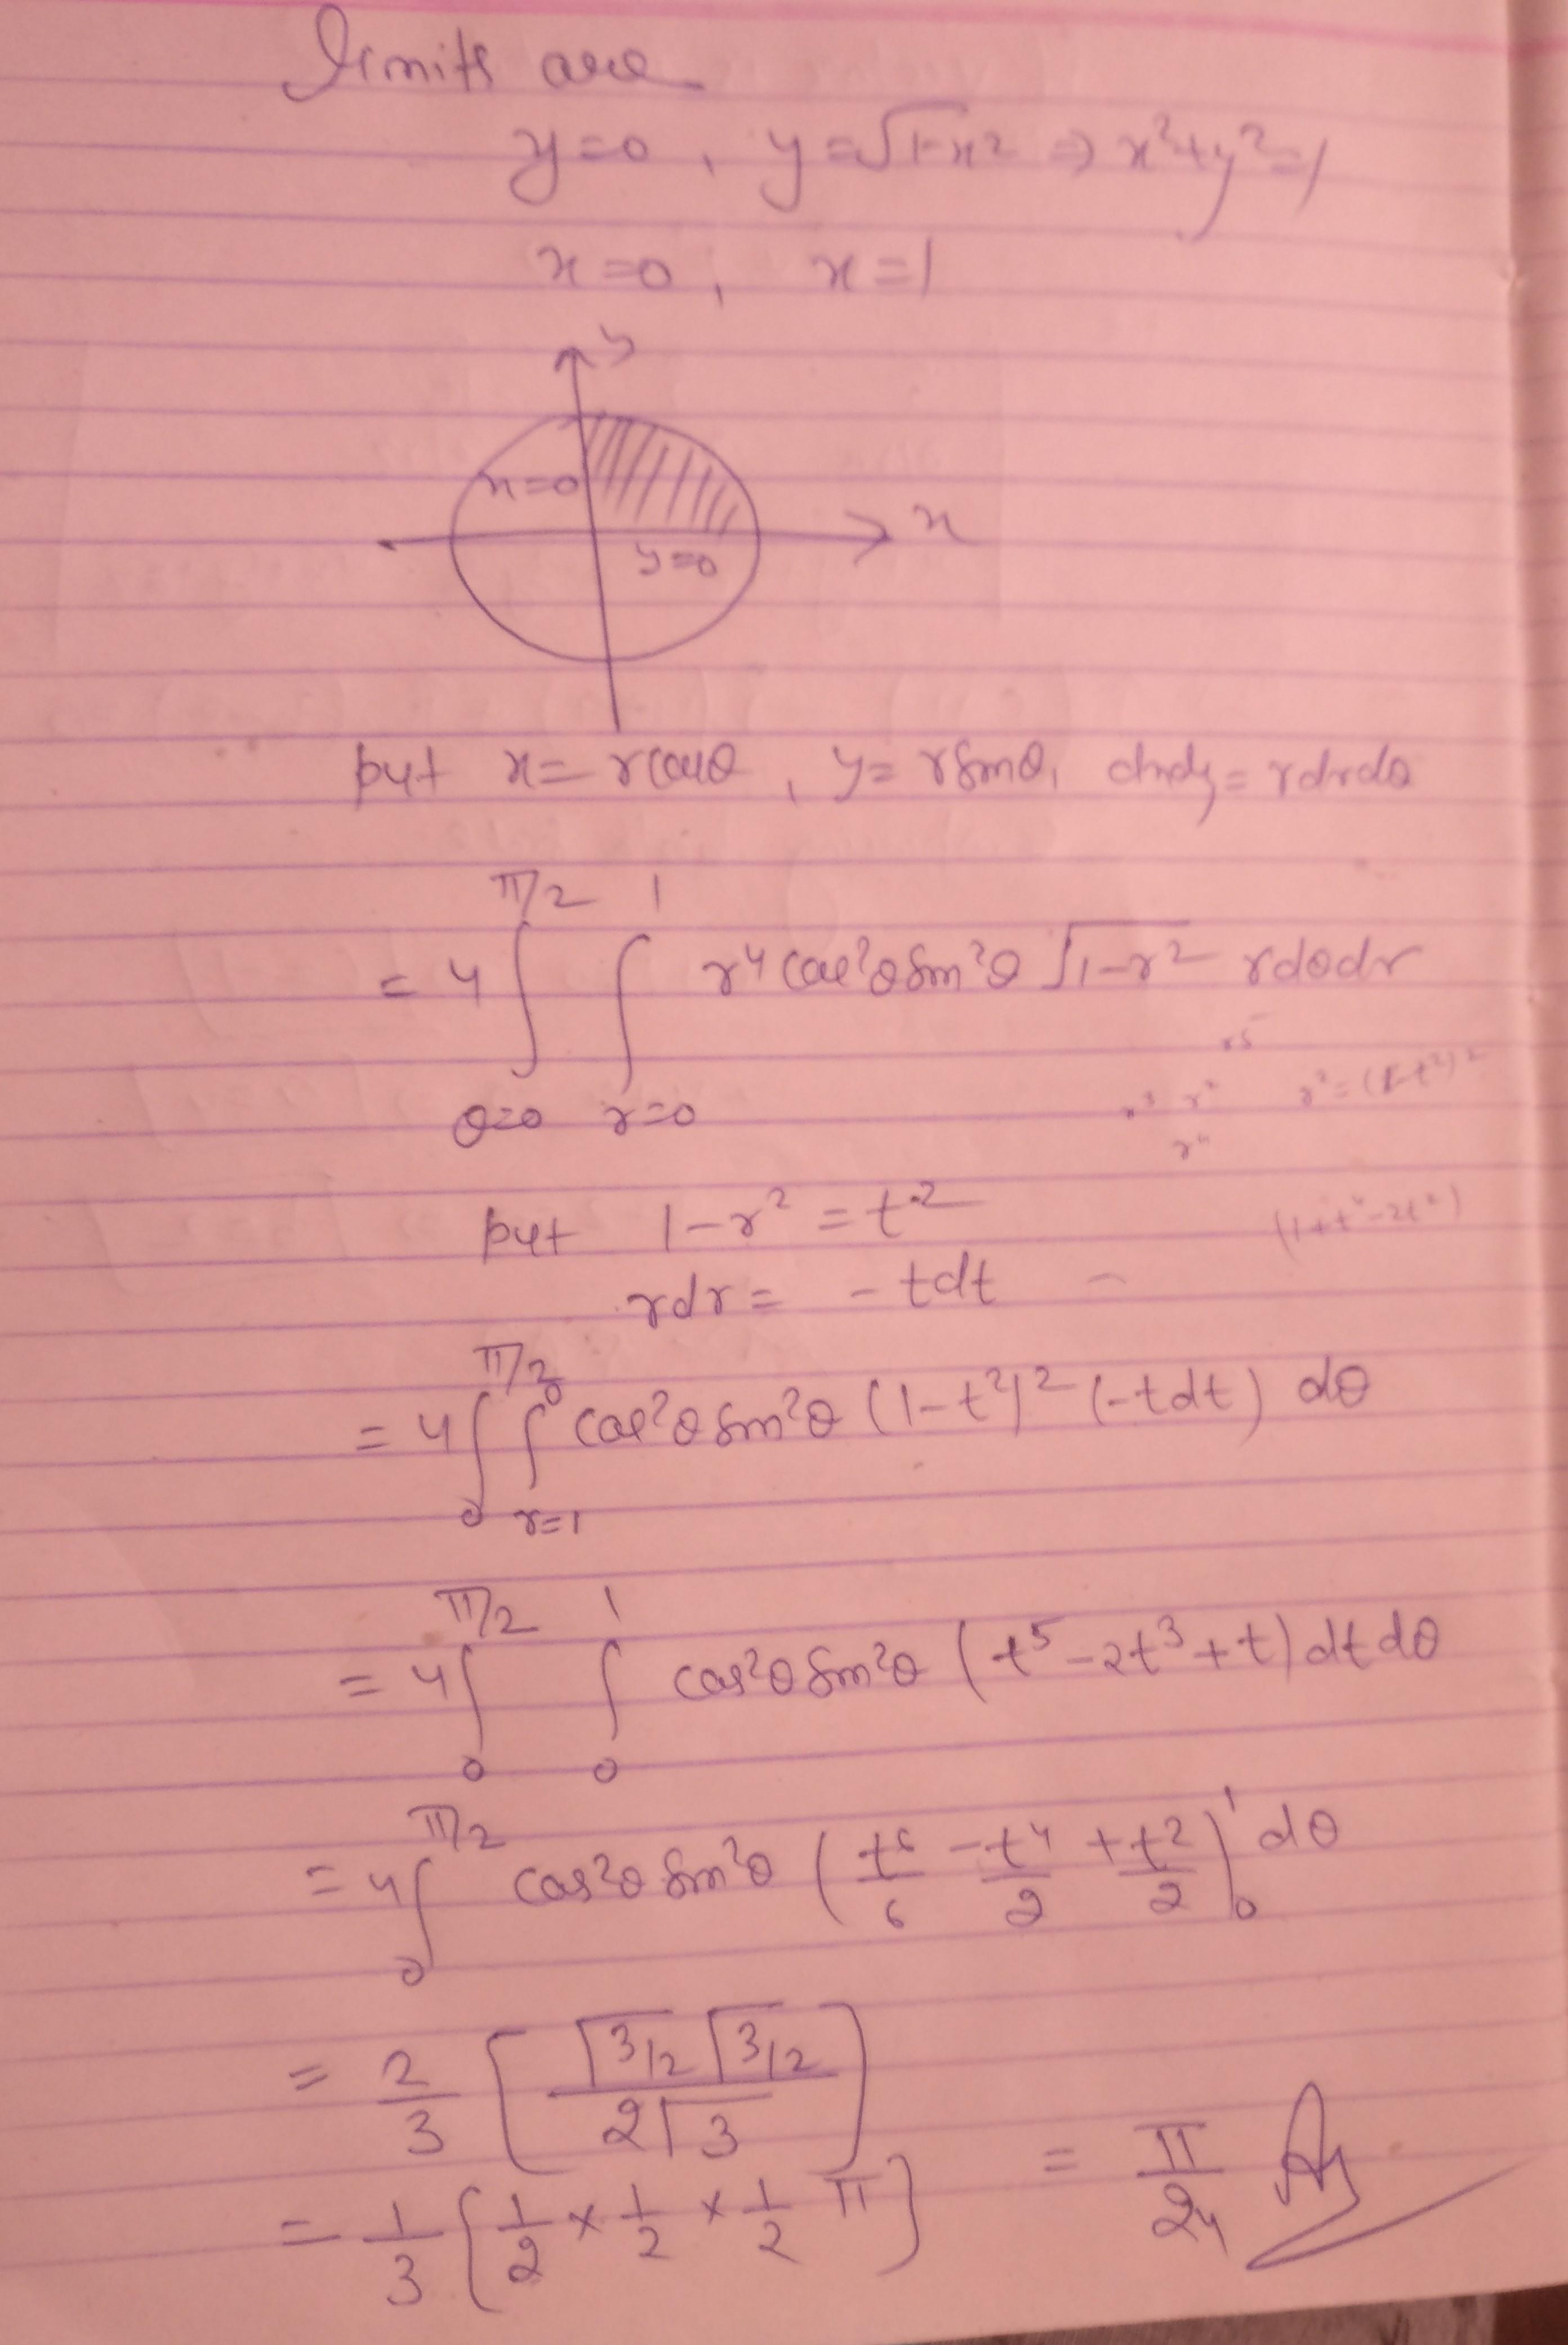 limits are
y=0, y=√1-x² ⇒ x²+y²=1
x=0, x=1
y
x=0
x
y=0
put x=rcosθ, y=rsinθ, dxdy=rdrdθ
π/2 1
= 4∫ ∫ r⁴cos²θsin²θ √1-r² rdθdr
θ=0 r=0
r5
r³ r² r²=(1-t²)²
r⁴
put 1-r²=t²
(1+t⁴-2t²)
rdr= -tdt
π/2 0
= 4∫ ∫ cos²θsin²θ (1-t²)² (-tdt) dθ
0 r=1
π/2 1
= 4∫ ∫ cos²θsin²θ (t⁵-2t³+t)dtdθ
0 0
π/2
= 4∫ cos²θsin²θ (t⁶/6 - t⁴/2 + t²/2)¹₀ dθ
0
= 2/3 [Γ3/2 Γ3/2 / 2Γ3]
= 1/3 {1/2 × 1/2 × 1/2 π} = π/24 Ans